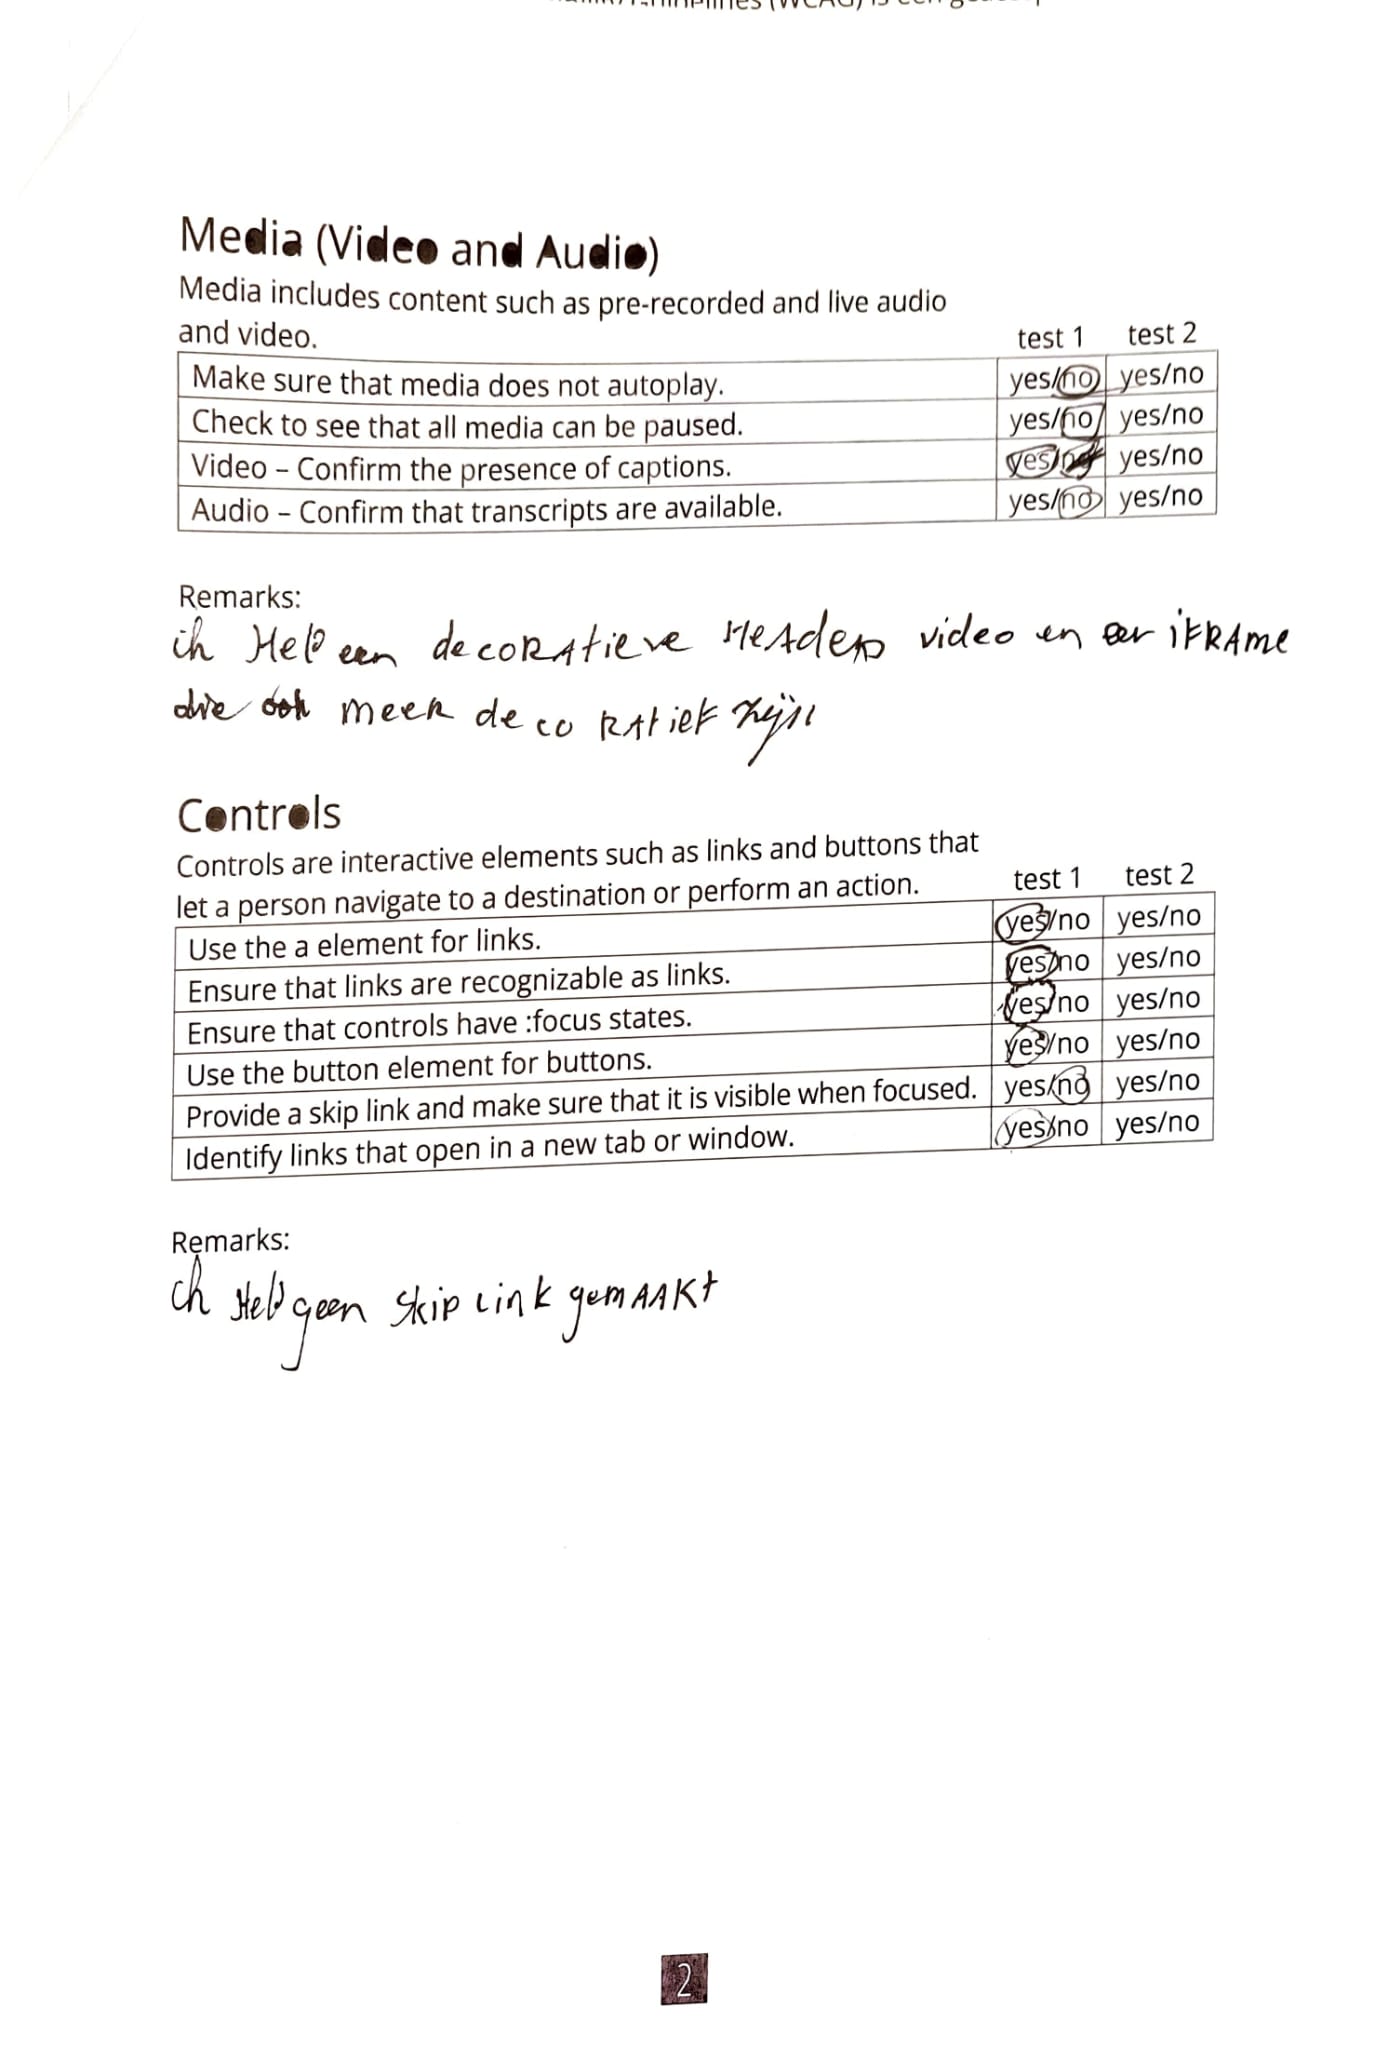 Media (Video and Audio)
Media includes content such as pre-recorded and live audio
and video.
test 1 test 2
Make sure that media does not autoplay. yes/no yes/no
Check to see that all media can be paused. yes/no yes/no
Video – Confirm the presence of captions. yes/no yes/no
Audio – Confirm that transcripts are available. yes/no yes/no
Remarks:
ik Heb een decoRAtieve HeAder video en een iFRAme
die ook meer decoRAtief zijn
Controls
Controls are interactive elements such as links and buttons that
let a person navigate to a destination or perform an action.
test 1 test 2
Use the a element for links. yes/no yes/no
Ensure that links are recognizable as links. yes/no yes/no
Ensure that controls have :focus states. yes/no yes/no
Use the button element for buttons. yes/no yes/no
Provide a skip link and make sure that it is visible when focused. yes/no yes/no
Identify links that open in a new tab or window. yes/no yes/no
Remarks:
ik Heb geen Skip Link gemAAKt
2